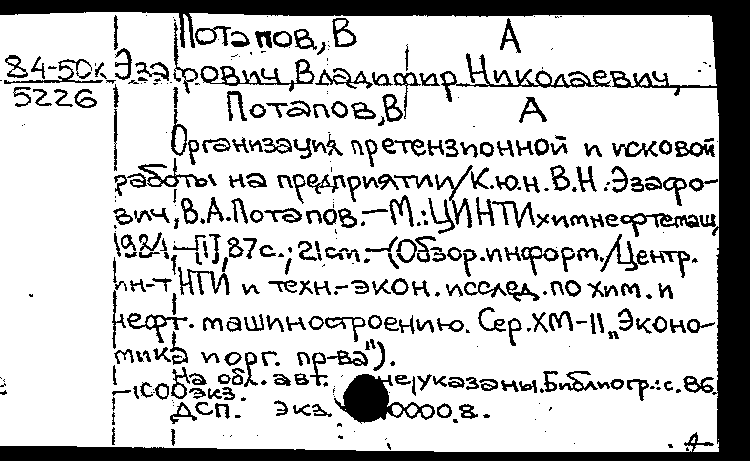 Потапов, В А
84-50к Эзафрович, Владимир Николаевич,
5226 Потапов, В А
Организация претензионной и исковой
работы на предприятии/К.ю.н. В.Н. Эзафро-
вич, В.А. Потапов.-М.: ЦИНТИхимнефтемаш,
1984.-[1], 87с.; 21см.-(Обзор. информ./Центр.
ин-т НТИ и техн.-экон. исслед. по хим. и
нефт. машиностроению. Сер. ХМ-11 „Эконо-
мика и орг. пр-ва").
На обл. авт. не указаны. Библиогр.: с. 86.
-1000экз.
ДСП. Экз. 0000.8.